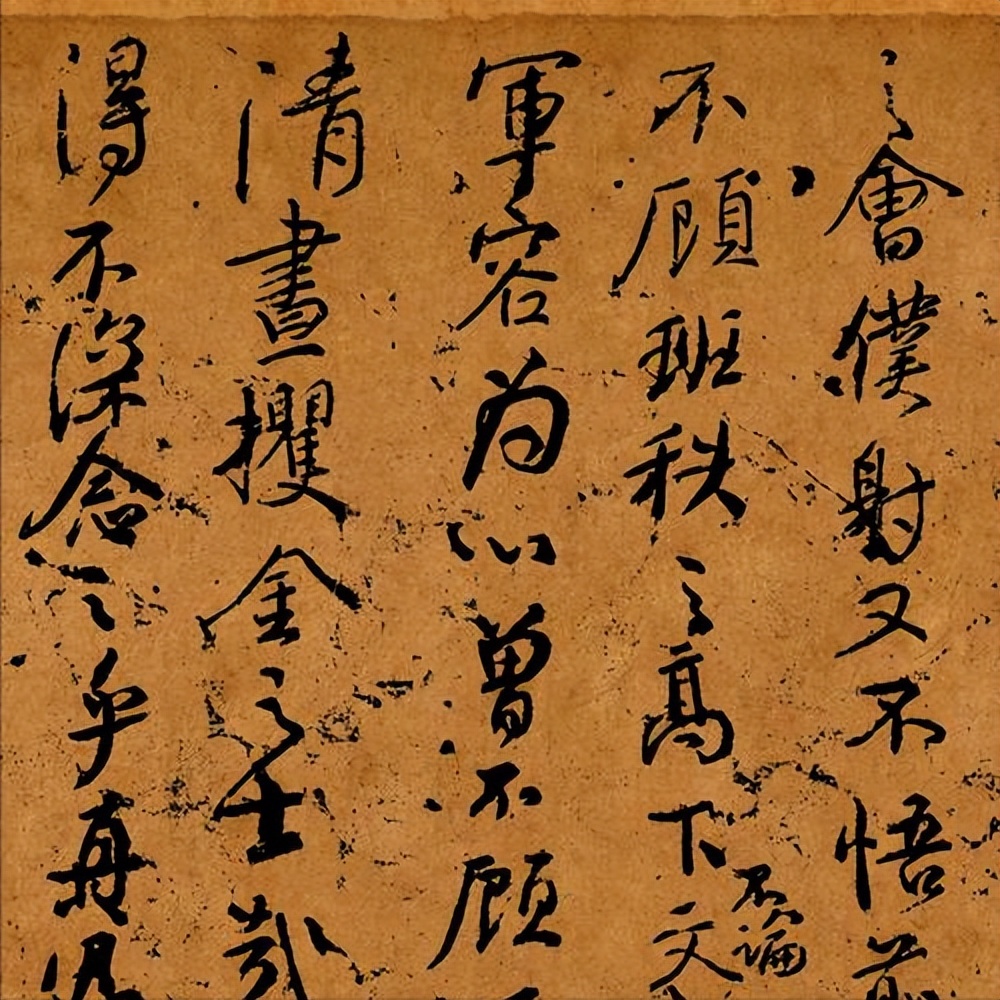 之會僕射又不悟前
不顧班秩之高下不論文
軍容為心曾不顧
清晝攫金之士哉
得不深念之乎再